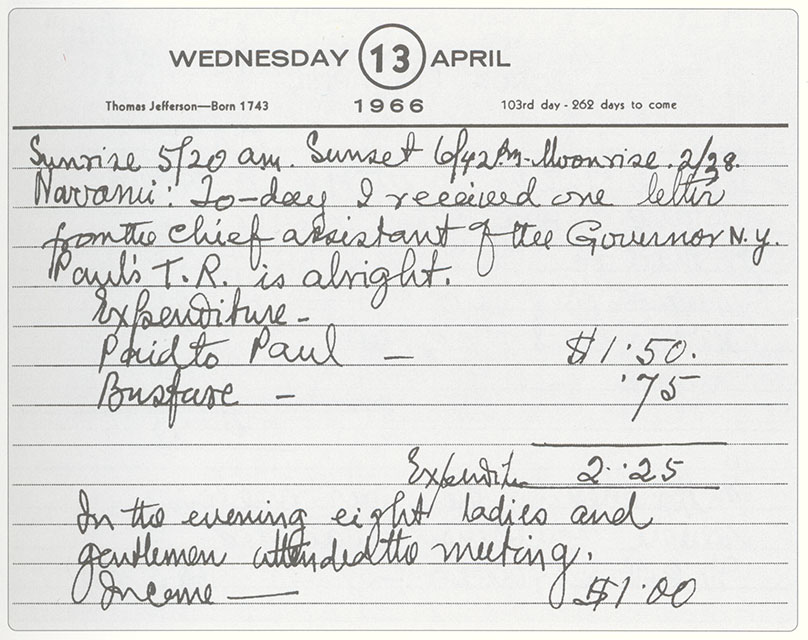 WEDNESDAY 13 APRIL
Thomas Jefferson—Born 1743 1966 103rd day - 262 days to come
Sunrise 5/20 am. Sunset 6/42 Pm. Moonrise. 2/38.
Navami: To-day I received one letter
from the Chief assistant of the Governor N.Y.
Paul's T.R. is alright.
Expenditure -
Paid to Paul — $1.50.
Busfare — .75
Expenditure 2..25
In the evening eight ladies and
gentlemen attended the meeting.
Income — $1.00